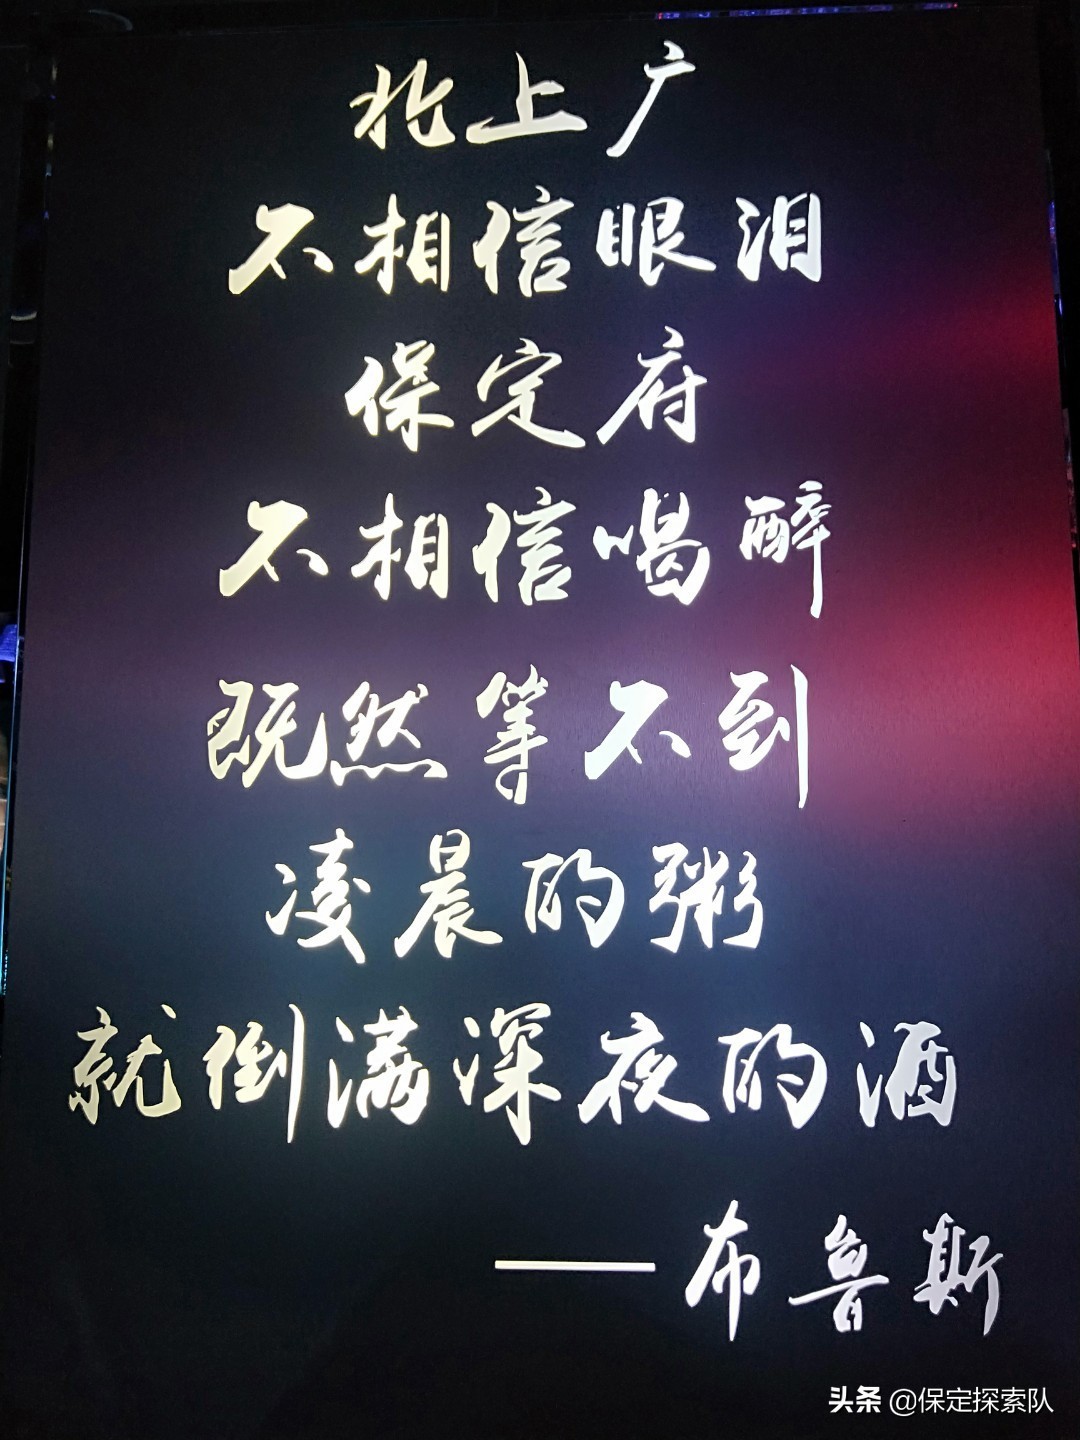 北上广
不相信眼泪
保定府
不相信喝醉
既然等不到
凌晨的粥
就倒满深夜的酒
——布鲁斯
头条 @保定探索队